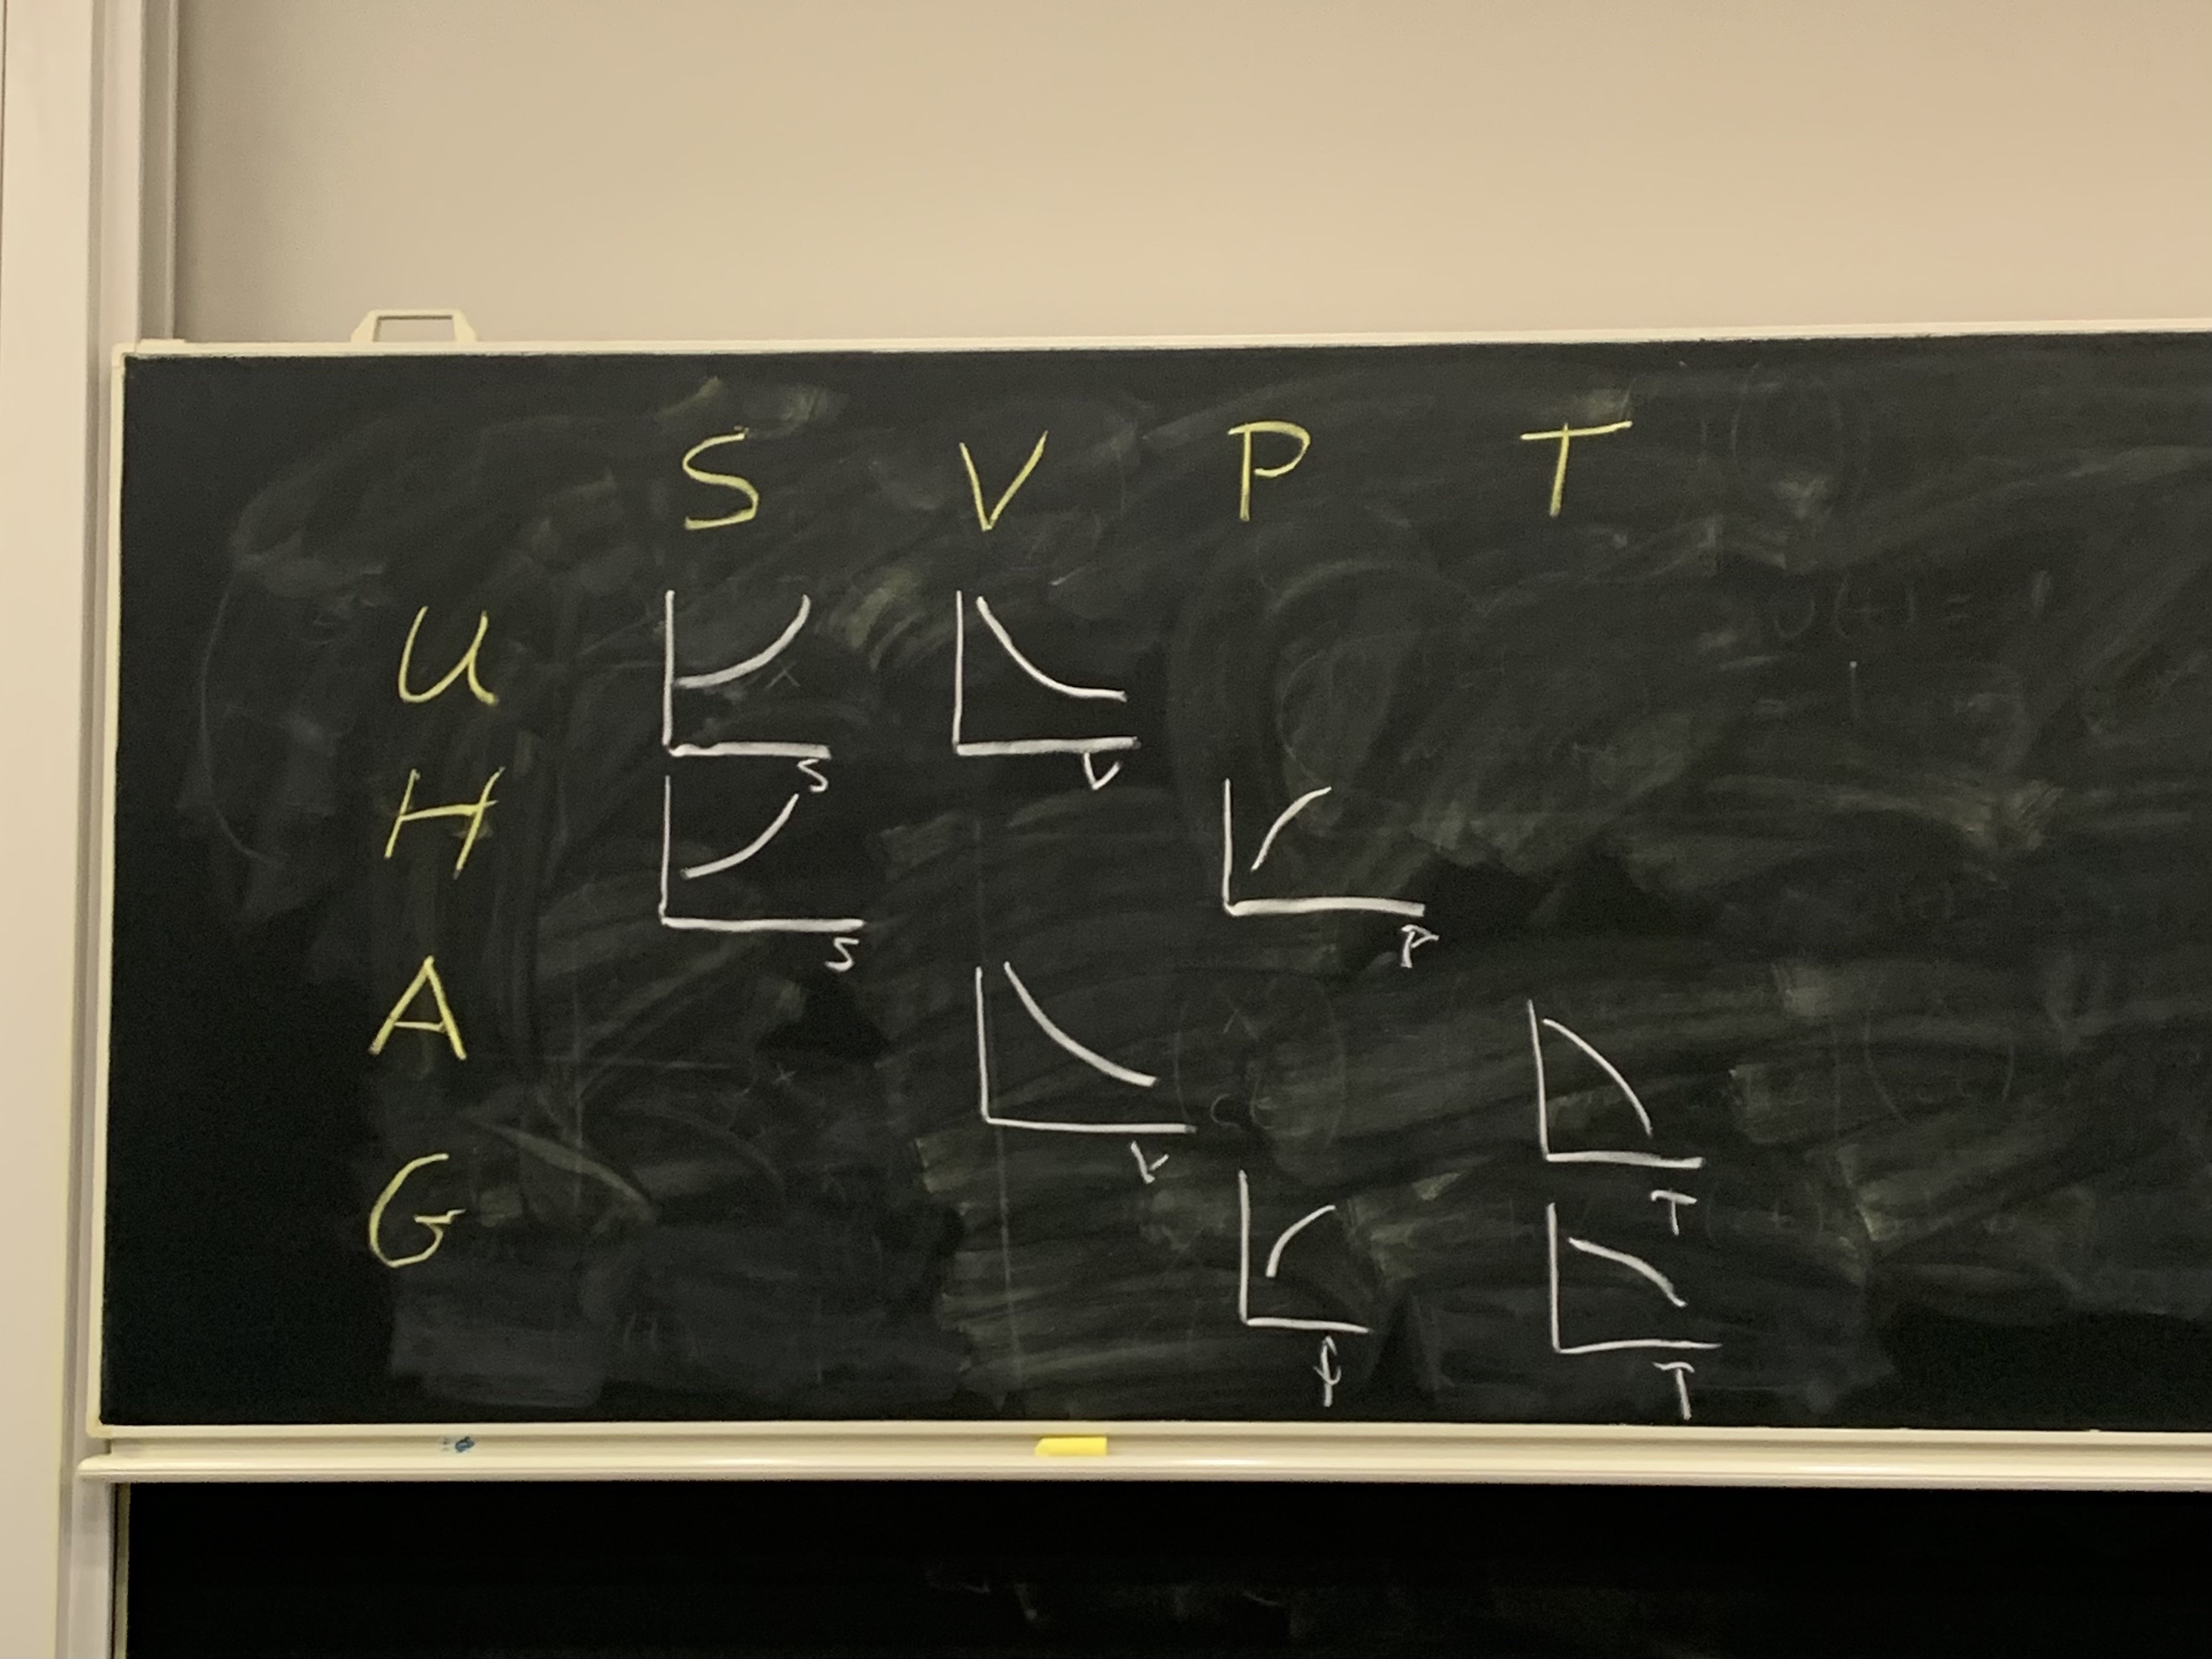 S V P T
U
S V
H
S P
A
V T
G
P T